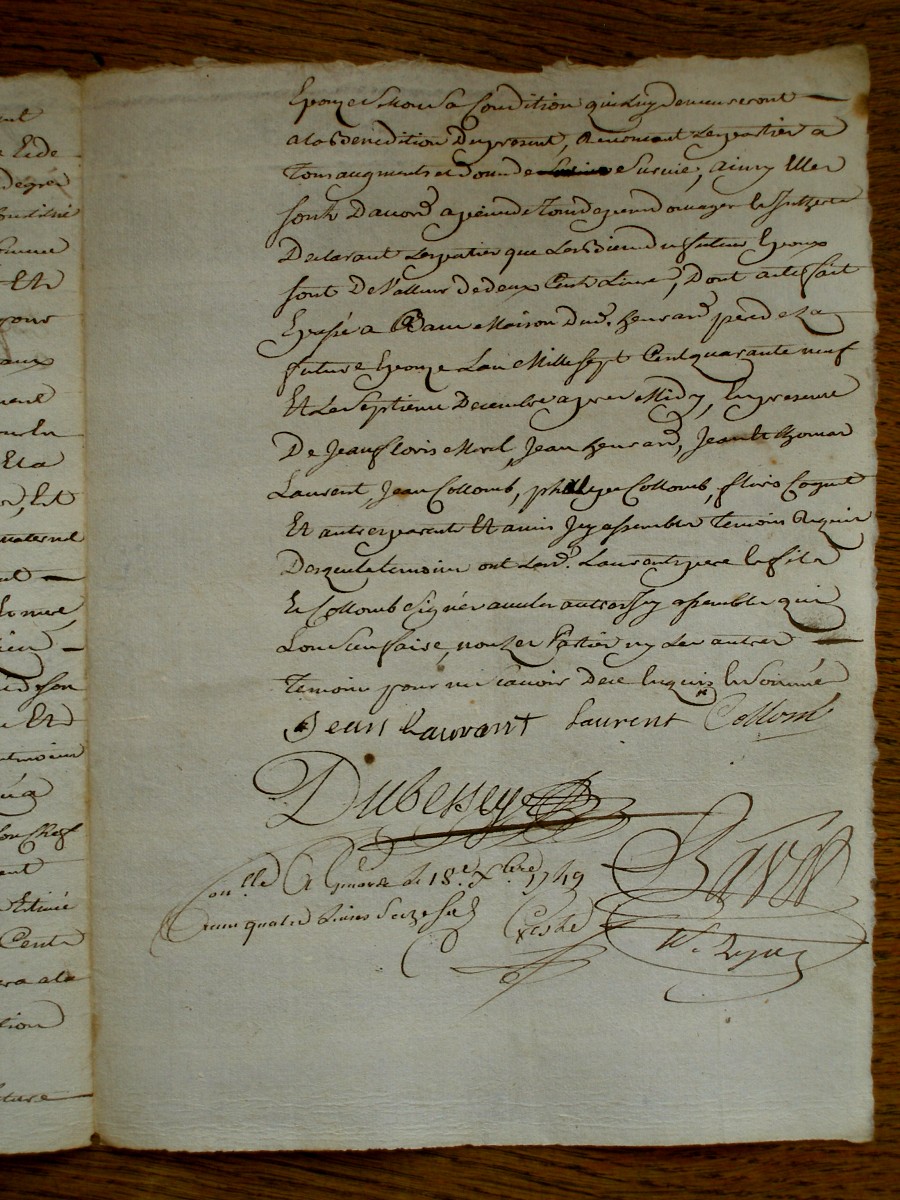 Epouze Sous Sa Condition qui Luy demeureront
a la Benediction Du present, Renoncant Les parties a
Tous augments et dons de Survie, ainsy Elles
Sont D'accord a peine de Tous depens domages Interets
Declarant Les parties que Les Biens du futur Epoux
sont De Valleur de deux Cents Livres, Dont acte fait
Et passé a Maison Dud. henrard pere de La
future Epouze L'an Mille Sept Cent quarante neuf
Et Le Septieme Decembre apres Midy, En presence
De Jean floris Morel, Jean henrard, Jean Thomas
Laurent, Jean Collomb, philipe Collomb, floris Coquet
Et autres parents Et amis Icy assemblés Temoins Requis
Desquels temoins ont Lesd. Laurents pere Et fils
Et Collomb Signé avec les autres Icy assemblés qui
L'ont Sceu faire, non Les Parties ny Les autres
Temoins pour ne scavoir De ce Enquis Et Sommés
Jean Lauvant Laurent Collomb
Dubessey
Con.lle A le 18.e Xbre 1749
quatre Livres Seize Sols